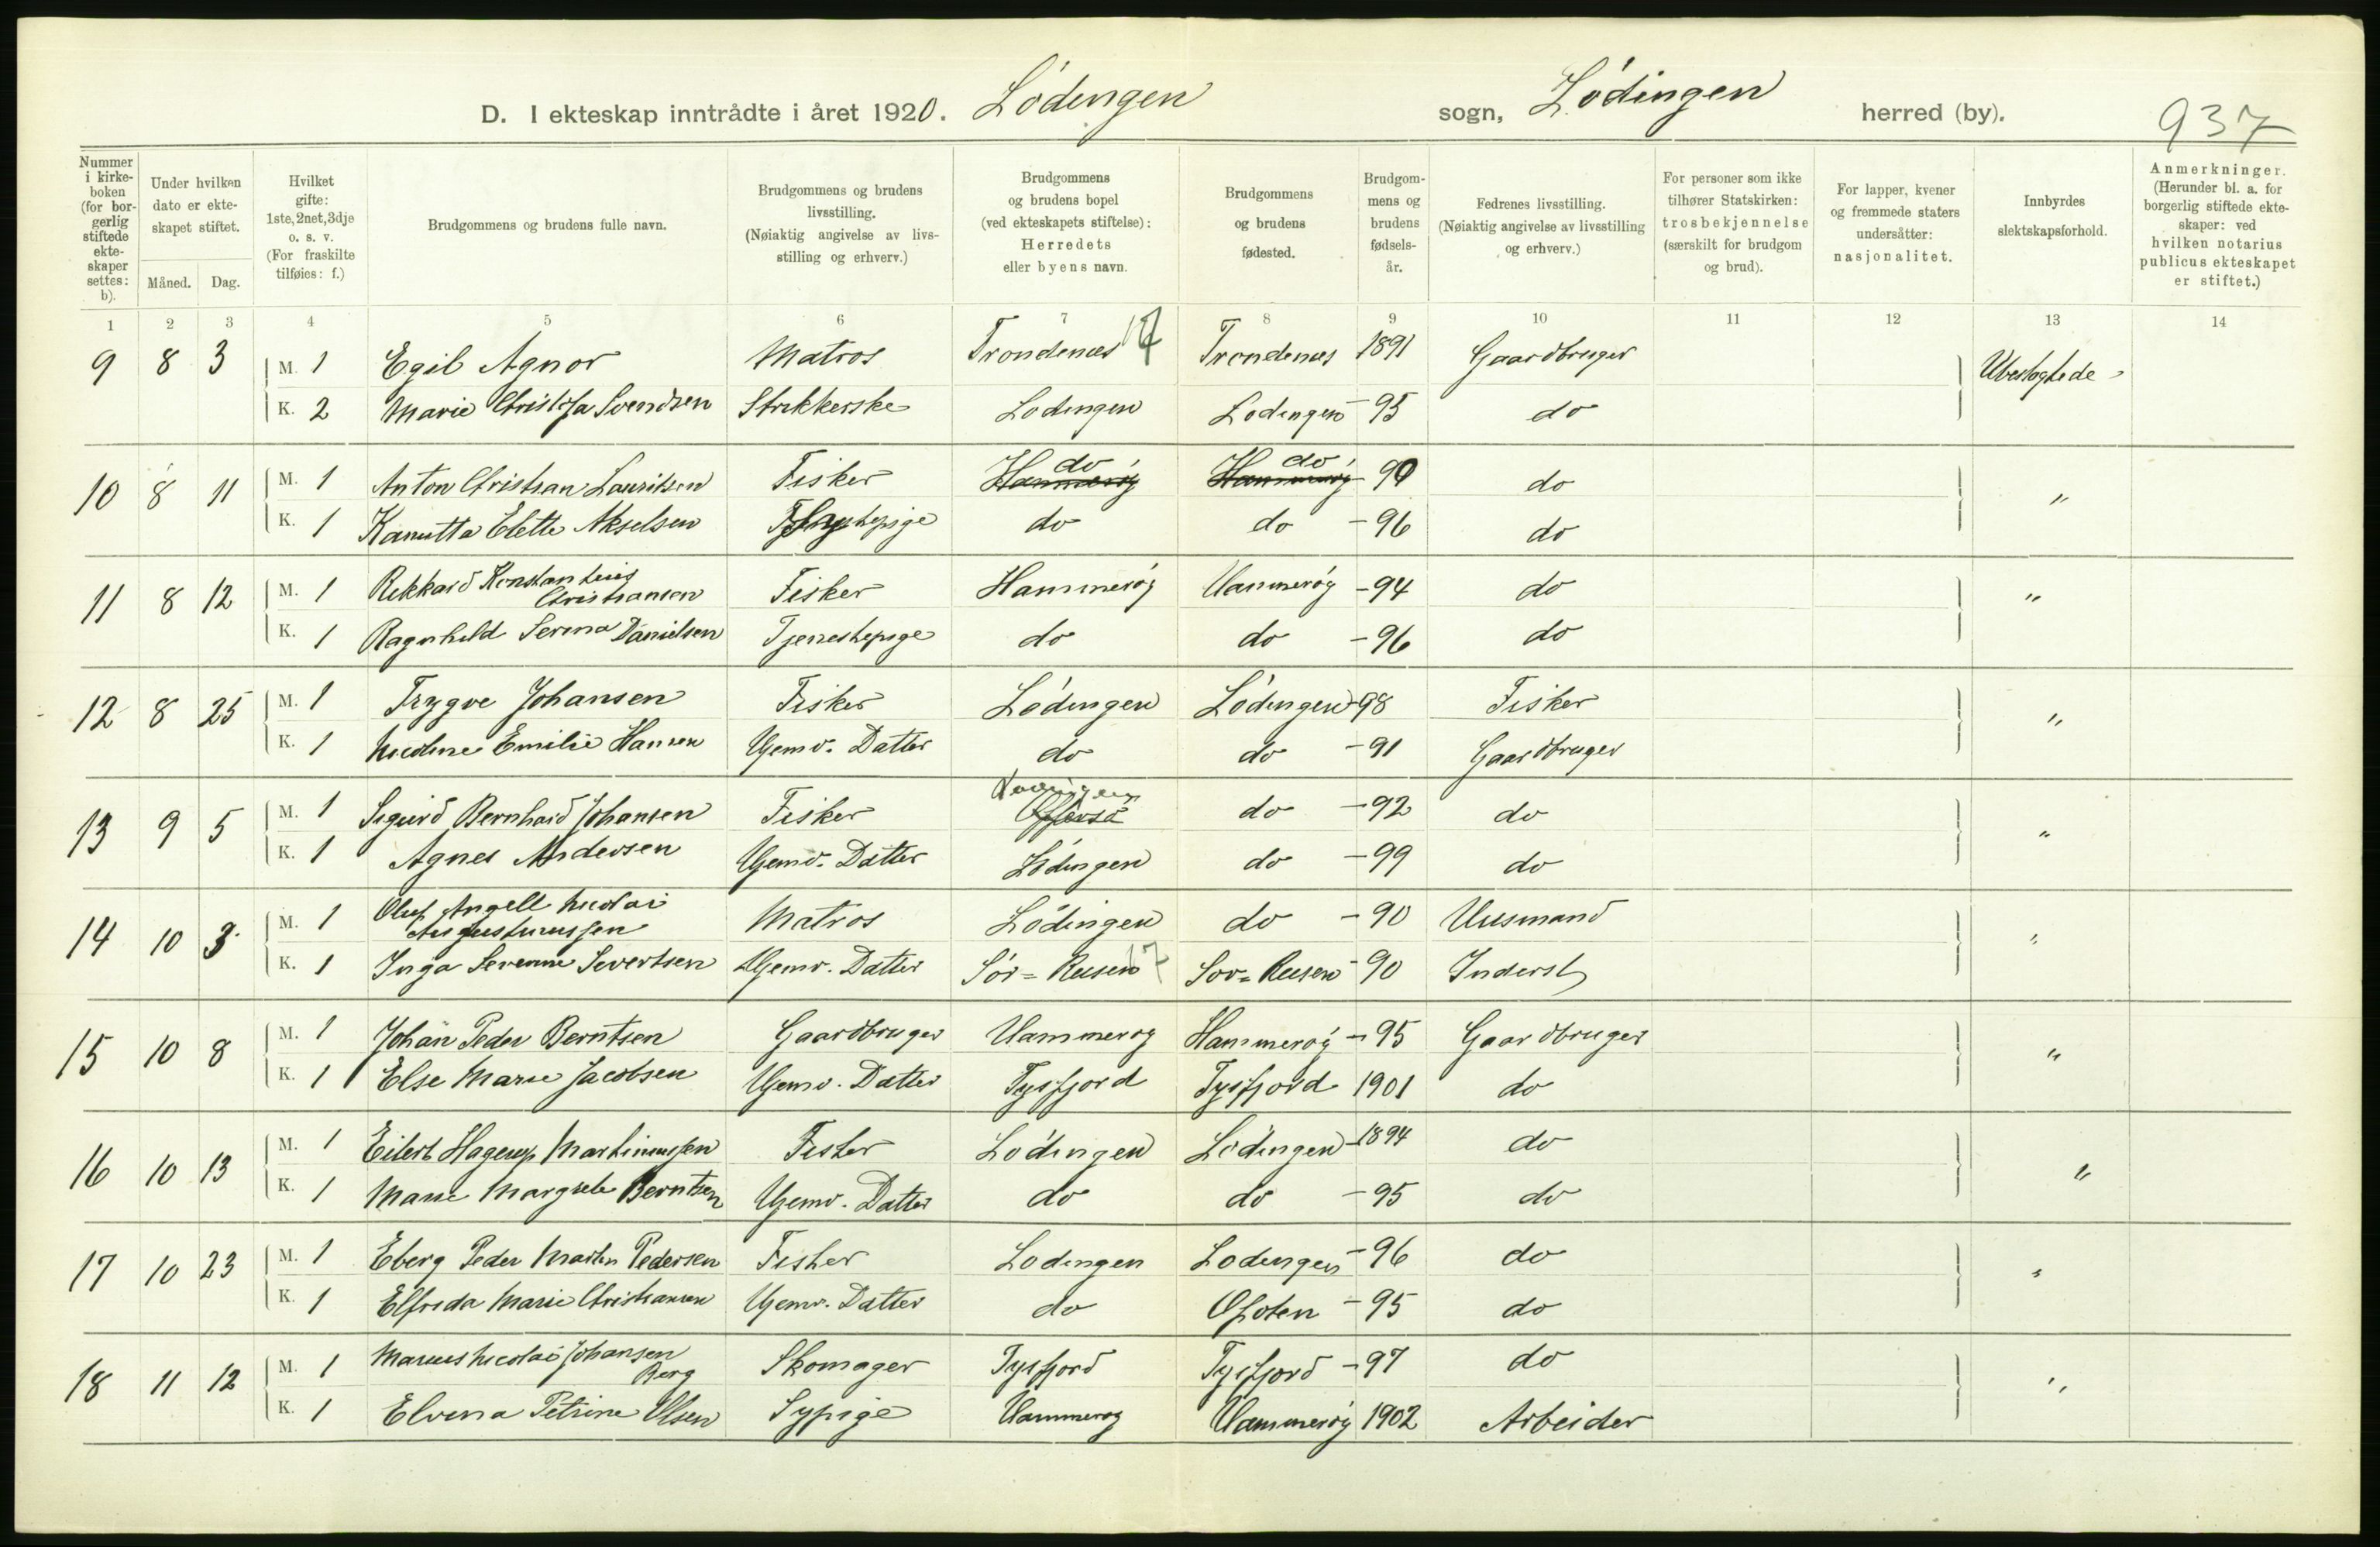 D. I ekteskap inntrådte i året 1920. Lödingen sogn, Lödingen herred (by). 937
Nummer i kirke-boken (for bor-gerlig stiftede ekte-skaper settes: b).
Under hvilken dato er ekte-skapet stiftet.
Måned. Dag.
Hvilket gifte: 1ste, 2net, 3dje o. s. v. (For fraskilte tilføies: f.)
Brudgommens og brudens fulle navn.
Brudgommens og brudens livsstilling. (Nøiaktig angivelse av livs-stilling og erhverv.)
Brudgommens og brudens bopel (ved ekteskapets stiftelse): Herredets eller byens navn.
Brudgommens og brudens fødested.
Brudgom-mens og brudens fødsels-år.
Fedrenes livsstilling. (Nøiaktig angivelse av livsstilling og erhverv.)
For personer som ikke tilhører Statskirken: trosbekjennelse (særskilt for brudgom og brud).
For lapper, kvener og fremmede staters undersåtter: nasjonalitet.
Innbyrdes slektskapsforhold.
Anmerkninger. (Herunder bl. a. for borgerlig stiftede ekte-skaper: ved hvilken notarius publicus ekteskapet er stiftet.)
1 2 3 4 5 6 7 8 9 10 11 12 13 14
9 8 3 M. 1 Egil Agnor Matros Trondenæs 17 Trondenæs 1891 Gaardbruger Ubeslægtede
K. 2 Marie Christofa Svendsen Strikkerske Lodingen Lodingen - 95 do
10 8 11 M. 1 Anton Christian Lauritsen Fisker Hammerög do Hammerög do - 90 do "
K. 1 Kanutta Elette Akselsen do do - 96 do
11 8 12 M. 1 Rikkard Konstantius Christiansen Fisker Hammerög Hammerög - 94 do "
K. 1 Ragnhild Serina Danielsen Tjenestepige do do - 96 do
12 8 25 M. 1 Trygve Johansen Fisker Lödingen Lödingen - 98 Fisker "
K. 1 Nicoline Emilie Hansen Hjemv. Datter do do - 91 Gaardbruger
13 9 5 M. 1 Sigurd Bernhard Johansen Fisker Lödingen do - 92 do "
K. 1 Agnes Andersen Hjemv. Datter Lödingen do - 99 do
14 10 3 M. 1 Oluf Angell Nicolai Augustinussen Matros Lödingen do - 90 Husmand "
K. 1 Inga Severine Severtsen Hjemv. Datter Sör=Reisen 17 Sör=Reisen - 90 Inderst
15 10 8 M. 1 Johan Peder Berntsen Gaardbruger Hammerog Hammerög - 95 Gaardbruger "
K. 1 Else Marie Jacobsen Hjemv. Datter Tysfjord Tysfjord 1901 do
16 10 13 M. 1 Eilert Hagerup Martinussen Fisker Lödingen Lödingen - 1894 do "
K. 1 Marie Margrete Berntsen Hjemv. Datter do do - 95 do
17 10 23 M. 1 Eberg Peder Martin Pedersen Fisker Lodingen Lodingen - 96 do "
K. 1 Elfrida Marie Christiansen Hjemv. Datter do Ofoten - 95 do
18 11 12 M. 1 Marius Nicolai Johansen Berg Skomager Tysfjord Tysfjord - 97 do "
K. 1 Elvina Petrine Olsen Sypige Hammerog Hammerög 1902 Arbeider